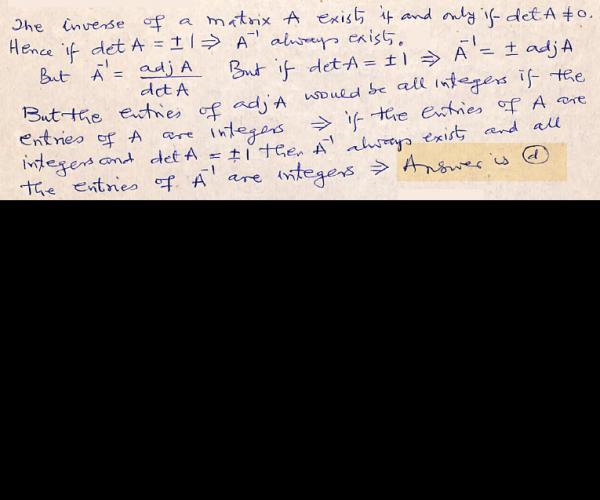 The inverse of a matrix A exists if and only if det A ≠ 0.
Hence if det A = ±1 ⇒ A⁻¹ always exist.
But A⁻¹ = adj A / det A But if det A = ±1 ⇒ A⁻¹ = ± adj A
But the entries of adj A would be all integers if the
entries of A are integers ⇒ if the entries of A are
integers and det A = ±1 then A⁻¹ always exists and all
the entries of A⁻¹ are integers ⇒ Answer is (d)